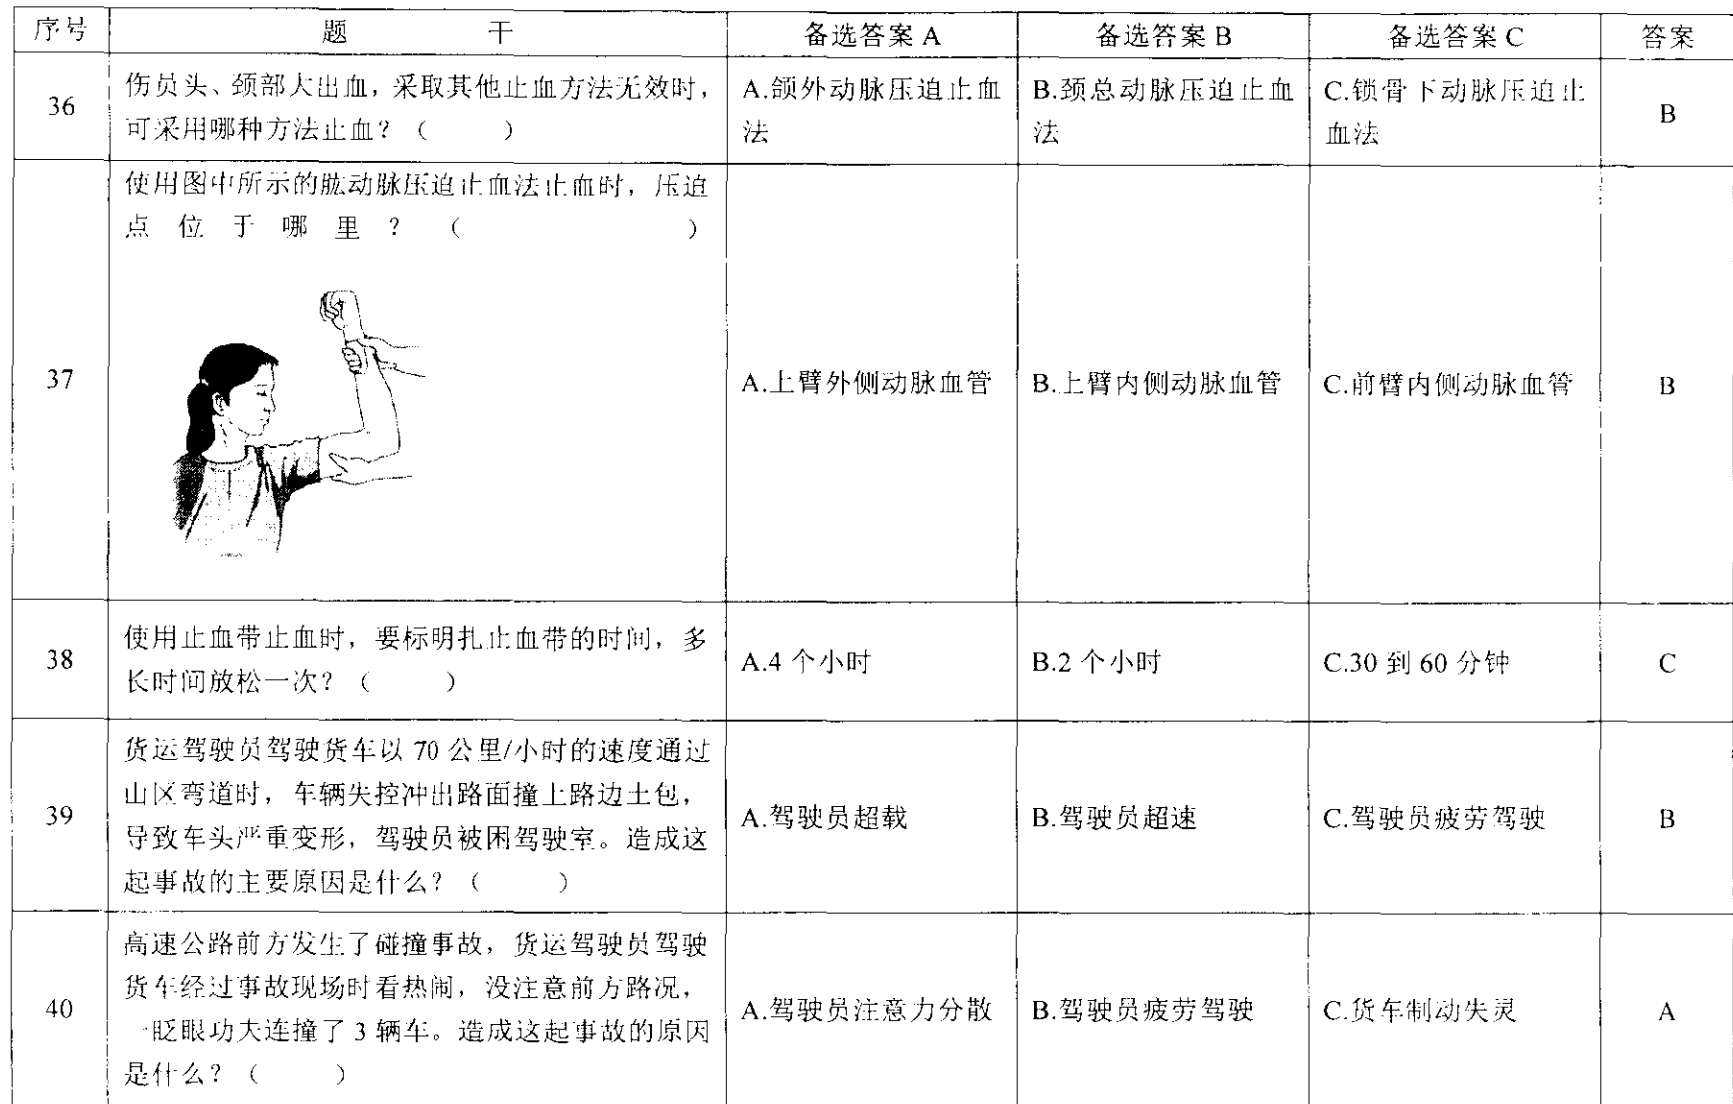 序号 题 干 备选答案 A 备选答案 B 备选答案 C 答案
36
伤员头、颈部大出血，采取其他止血方法无效时，
可采用哪种方法止血？（ ）
A.颌外动脉压迫止血
法
B.颈总动脉压迫止血
法
C.锁骨下动脉压迫止
血法
B
37
使用图中所示的肱动脉压迫止血法止血时，压迫
点位于哪里？（ ）
A.上臂外侧动脉血管
B.上臂内侧动脉血管
C.前臂内侧动脉血管
B
38
使用止血带止血时，要标明扎止血带的时间，多
长时间放松一次？（ ）
A.4 个小时
B.2 个小时
C.30 到 60 分钟
C
39
货运驾驶员驾驶货车以 70 公里/小时的速度通过
山区弯道时，车辆失控冲出路面撞上路边土包，
导致车头严重变形，驾驶员被困驾驶室。造成这
起事故的主要原因是什么？（ ）
A.驾驶员超载
B.驾驶员超速
C.驾驶员疲劳驾驶
B
40
高速公路前方发生了碰撞事故，货运驾驶员驾驶
货车经过事故现场时看热闹，没注意前方路况，
一眨眼功夫连撞了 3 辆车。造成这起事故的原因
是什么？（ ）
A.驾驶员注意力分散
B.驾驶员疲劳驾驶
C.货车制动失灵
A